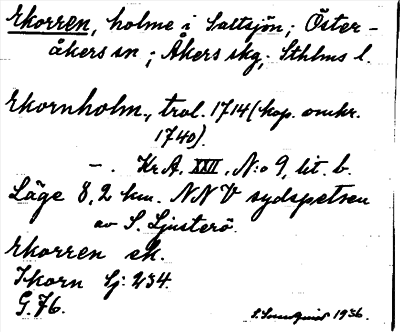 Ekorren, holme i Saltsjön; Öster-
åkers sn; Åkers skg; Sthlms l.
Ekornholm, trol. 1714 (: kop. omkr.
1740).
—. Kr A, XXII, N:o 9, lit. b.
Läge 8,2 km. NNV sydspetsen
av S. Ljusterö.
Ekorren ek.
Ikorn Sj: 234.
G. 76.
1936.